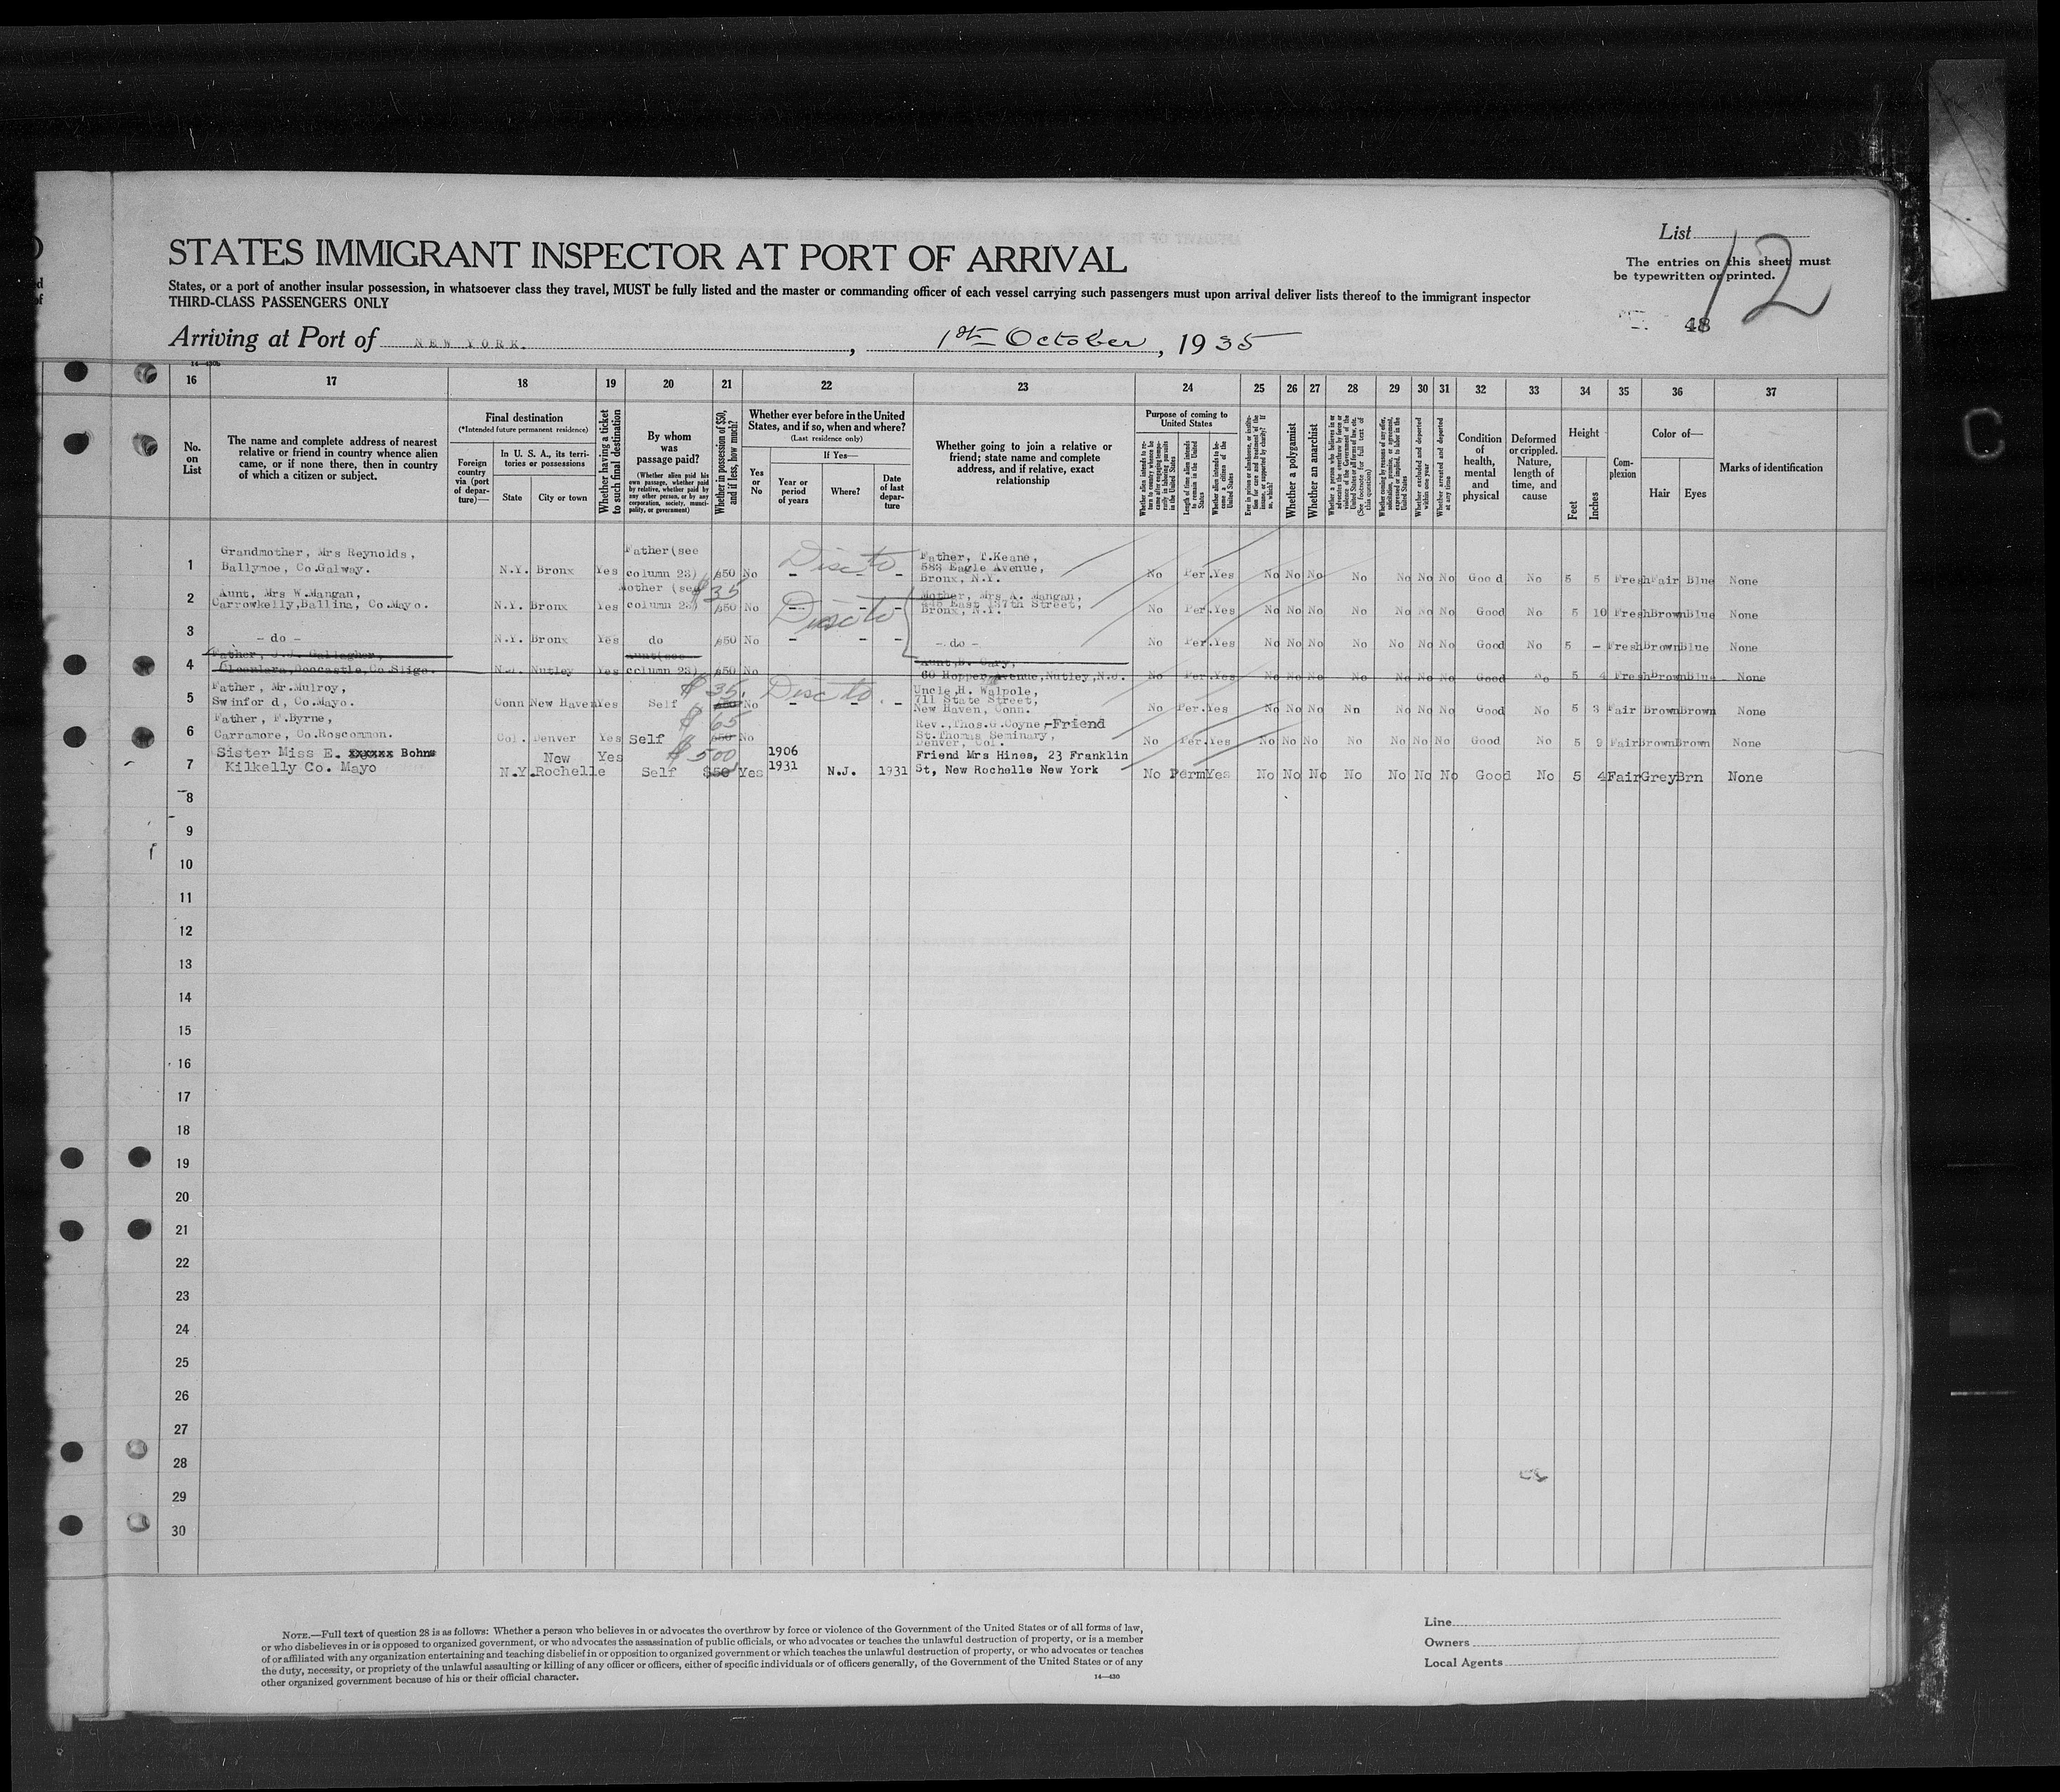 List 12
STATES IMMIGRANT INSPECTOR AT PORT OF ARRIVAL
The entries on this sheet must
be typewritten or printed.
States, or a port of another insular possession, in whatsoever class they travel, MUST be fully listed and the master or commanding officer of each vessel carrying such passengers must upon arrival deliver lists thereof to the immigrant inspector
THIRD-CLASS PASSENGERS ONLY
48
Arriving at Port of NEW YORK. , 1st October , 1935
16 17 18 19 20 21 22 23 24 25 26 27 28 29 30 31 32 33 34 35 36 37
No.
on
List
The name and complete address of nearest
relative or friend in country whence alien
came, or if none there, then in country
of which a citizen or subject.
Final destination
(*Intended future permanent residence)
Foreign
country
via (port
of depar-
ture)—
In U. S. A., its terri-
tories or possessions
State
City or town
Whether having a ticket
to such final destination
By whom
was
passage paid?
(Whether alien paid his
own passage, whether paid
by relative, whether paid by
any other person, or by any
corporation, society, munici-
pality, or government)
Whether in possession of $50,
and if less, how much?
Whether ever before in the United
States, and if so, when and where?
(Last residence only)
Yes
or
No
If Yes—
Year or
period
of years
Where?
Date
of last
depar-
ture
Whether going to join a relative or
friend; state name and complete
address, and if relative, exact
relationship
Purpose of coming to
United States
Whether alien intends to re-
turn to country whence he
came after engaging tempo-
rarily in laboring pursuits
in the United States
Length of time alien intends
to remain in the United
States
Whether alien intends to be-
come a citizen of the
United States
Ever in prison or almshouse or institu-
tion for care and treatment of the
insane, or supported by charity? If
so, which?
Whether a polygamist
Whether an anarchist
Whether a person who believes in or
advocates the overthrow by force or
violence of the Government of the
United States or all forms of law, etc.
(See footnote for full text of
this question)
Whether coming by reasons of any offer,
solicitation, promise, or agreement,
expressed or implied, to labor in the
United States
Whether excluded and deported
within one year
Whether arrested and deported
at any time
Condition
of
health,
mental
and
physical
Deformed
or crippled.
Nature,
length of
time, and
cause
Height
Feet
Inches
Com-
plexion
Color of—
Hair
Eyes
Marks of identification
1 Grandmother, Mrs Reynolds,
Ballymoe, Co.Galway. N.Y. Bronx Yes Father (see
column 23) $50 No – – – Father, T.Keane,
583 Eagle Avenue,
Bronx, N.Y. No Per. Yes No No No No No No No Good No 5 5 Fresh Fair Blue None
2 Aunt, Mrs W.Mangan,
Carrowkelly,Ballina, Co.Mayo. N.Y. Bronx Yes Mother (see
column 23) $35 $50 No – – – Mother, Mrs A. Mangan,
East 137th Street,
Bronx, N.Y. No Per. Yes No No No No No No No Good No 5 10 Fresh Brown Blue None
3 - do - N.Y. Bronx Yes do $50 No – – – - do - No Per. Yes No No No No No No No Good No 5 – Fresh Brown Blue None
4 Father, J.J. Gallagher,
Doocastle,Co.Sligo. N.J. Nutley Yes Aunt(see
column 23) $50 No Aunt,B. Cary,
60 Hopper Avenue,Nutley,N.J. No Per. Yes No No No No No No No Good No 5 4 Fresh Brown Blue None
5 Father, Mr.Mulroy,
Swinford, Co.Mayo. Conn New Haven Yes Self $35. $50 No – – – Uncle,H. Walpole,
711 State Street,
New Haven, Conn. No Per. Yes No No No No No No No Good No 5 3 Fair Brown Brown None
6 Father, F.Byrne,
Carramore, Co.Roscommon. Col. Denver Yes Self $65 $50 No Rev.,Thos.G.Coyne,-Friend
St.Thomas Seminary,
Denver, Col. No Per. Yes No No No No No No No Good No 5 9 Fair Brown Brown None
7 Sister Miss E. xxxxxx Bohns
Kilkelly Co. Mayo N.Y. New
Rochelle Yes Self $500 $50 Yes 1906
1931 N.J. 1931 Friend Mrs Hines, 23 Franklin
St, New Rochelle New York No Perm Yes No No No No No No No Good No 5 4 Fair Grey Brn None
8
9
10
11
12
13
14
15
16
17
18
19
20
21
22
23
24
25
26
27
28
29
30
NOTE.—Full text of question 28 is as follows: Whether a person who believes in or advocates the overthrow by force or violence of the Government of the United States or of all forms of law,
or who disbelieves in or is opposed to organized government, or who advocates the assassination of public officials, or who advocates or teaches the unlawful destruction of property, or is a member
of or affiliated with any organization entertaining and teaching disbelief in or opposition to organized government or which teaches the unlawful destruction of property, or who advocates or teaches
the duty, necessity, or propriety of the unlawful assaulting or killing of any officer or officers, either of specific individuals or of officers generally, of the Government of the United States or of any
other organized government because of his or their official character.
14—430
Line
Owners
Local Agents